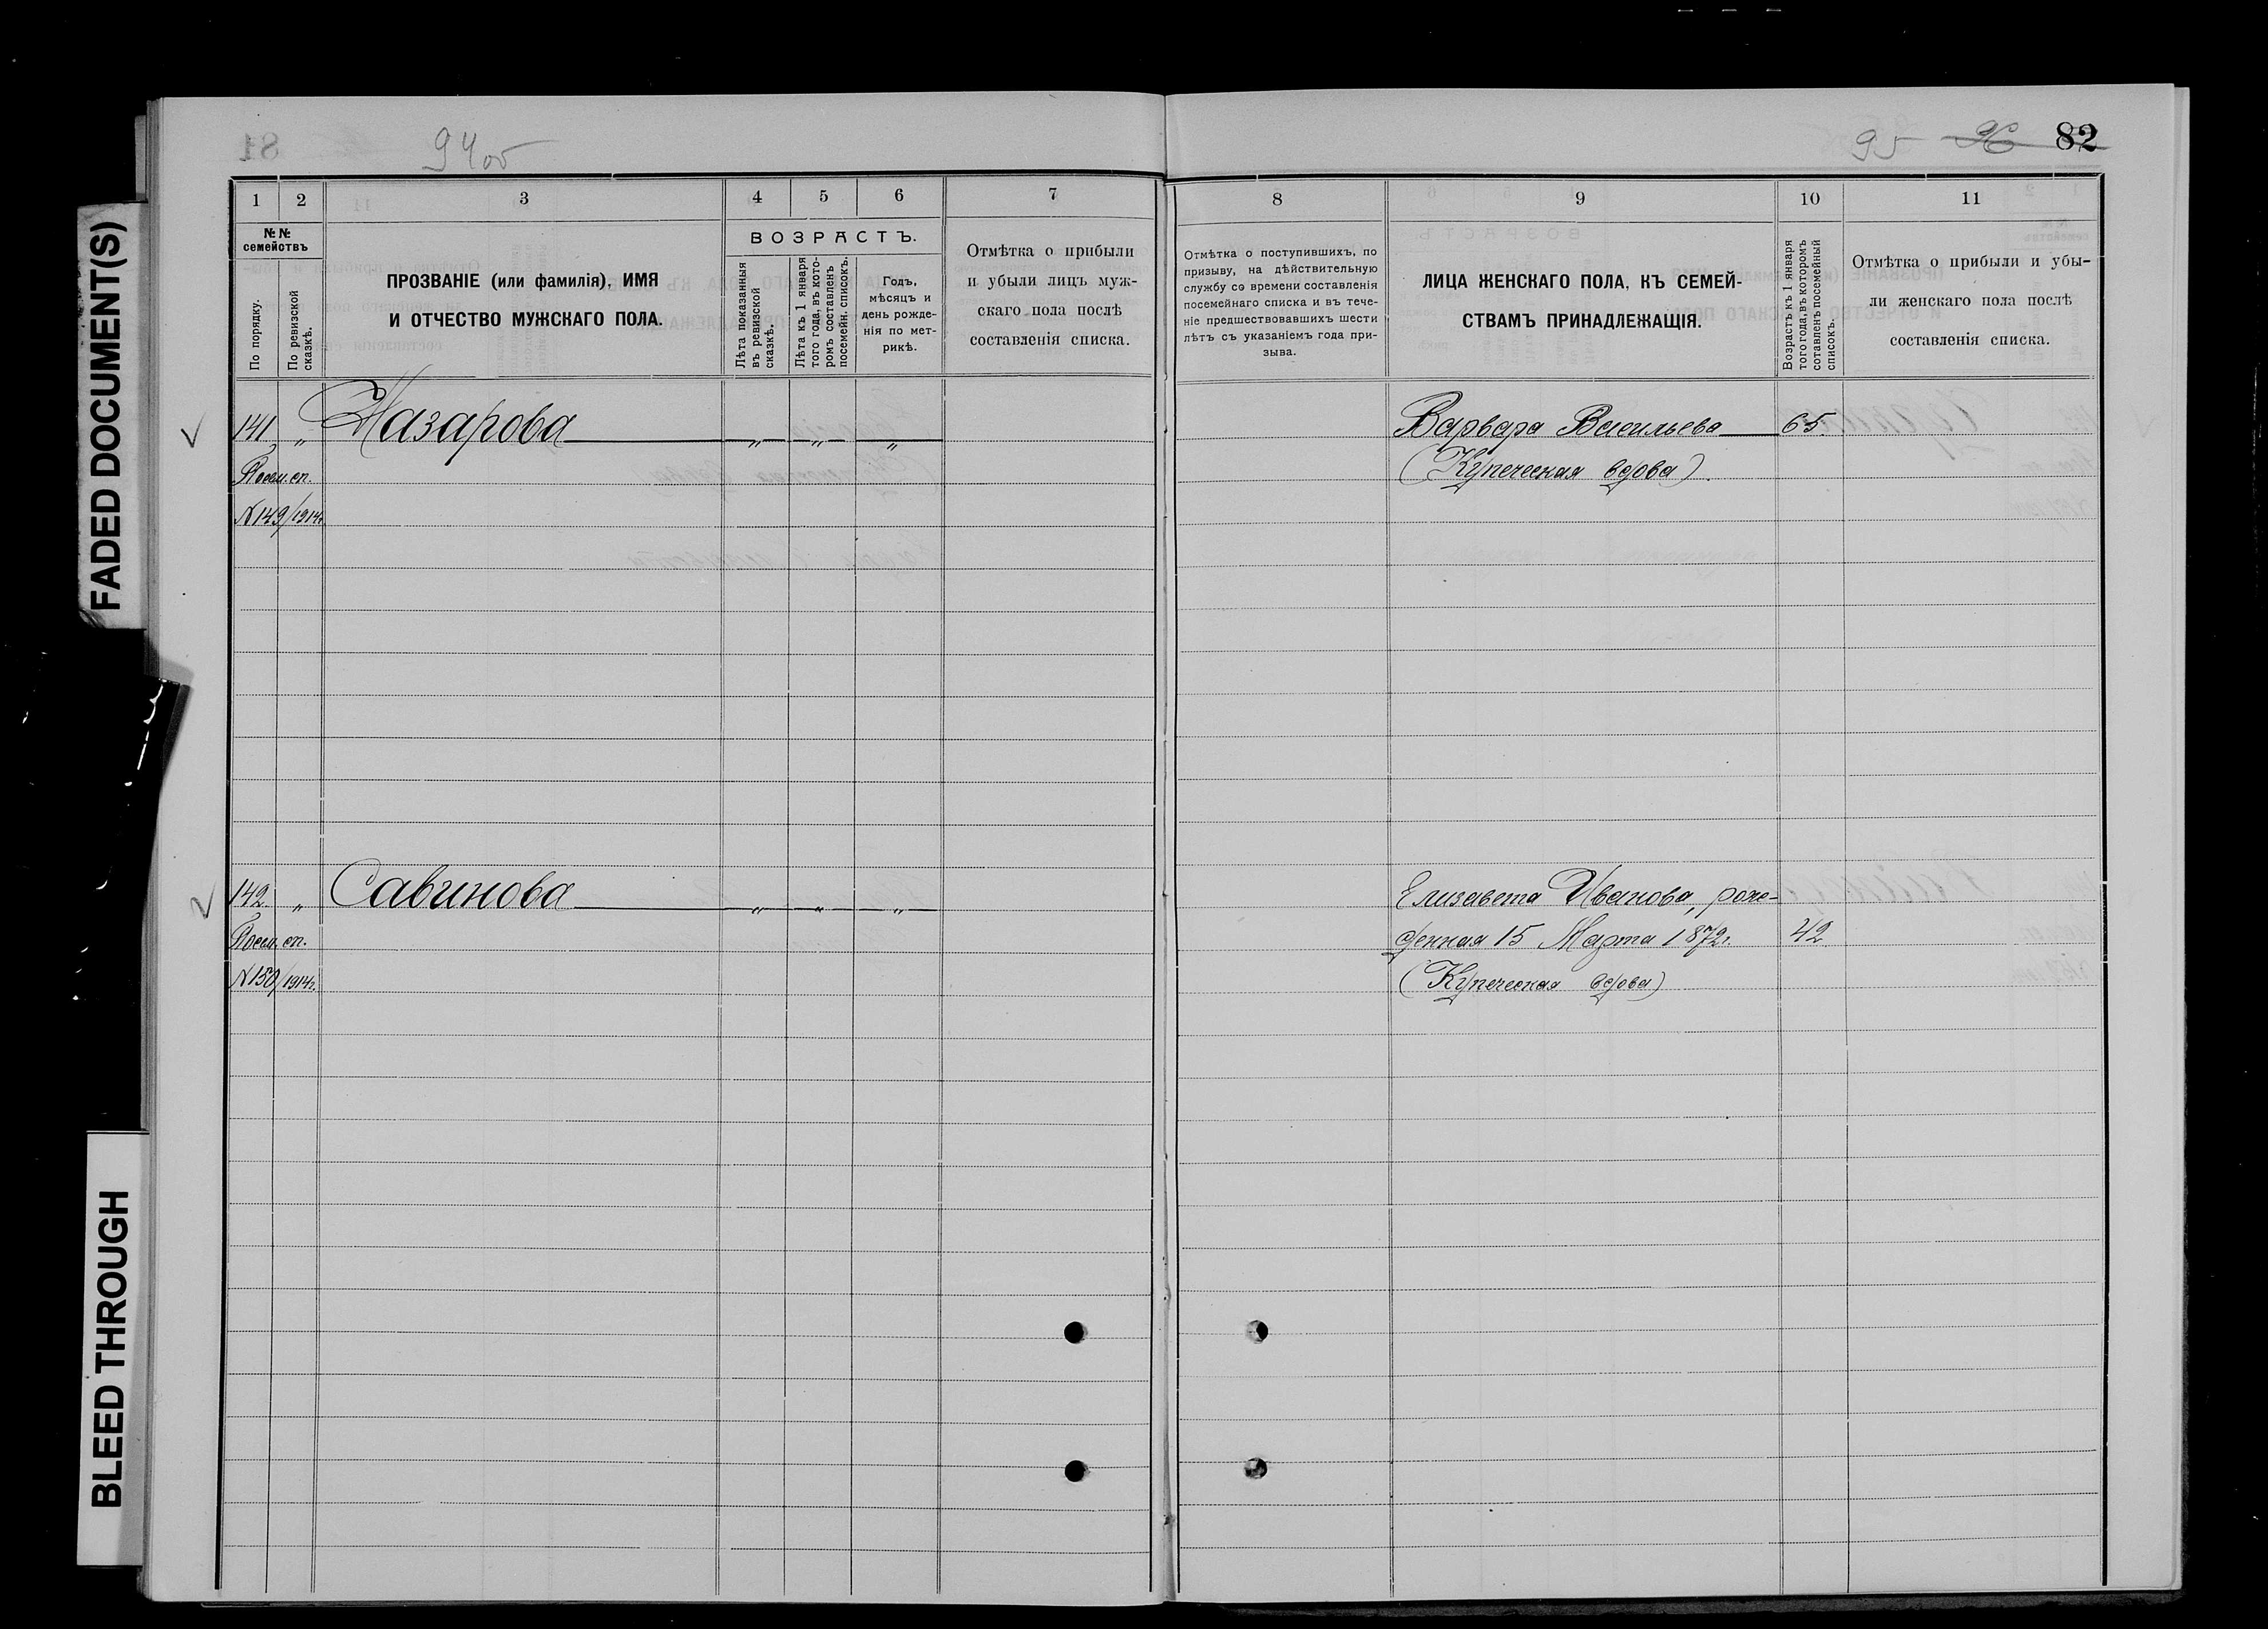 FADED DOCUMENT(S)
BLEED THROUGH
94об
95 96 82
1 2 3 4 5 6 7
№№ семействъ
По порядку.
По ревизской сказкѣ.
ПРОЗВАНІЕ (или фамилія), ИМЯ
И ОТЧЕСТВО МУЖСКАГО ПОЛА.
ВОЗРАСТЪ.
Лѣта показанныя
въ ревизской
сказкѣ.
Лѣта къ 1 января
того года, въ кото-
ромъ составленъ
посемейн. списокъ.
Годъ,
мѣсяцъ и
день рожде-
нія по мет-
рикѣ.
Отмѣтка о прибыли
и убыли лицъ муж-
скаго пола послѣ
составленія списка.
141 „ Назарова „ „ „
Посем. сп.
№149/1914г.
142. „ Савинова „ „ „
Посем. сп.
№150/1914г.
8 9 10 11
Отмѣтка о поступившихъ, по
призыву, на дѣйствительную
службу со времени составленія
посемейнаго списка и въ тече-
ніе предшествовавшихъ шести
лѣтъ съ указаніемъ года при-
зыва.
ЛИЦА ЖЕНСКАГО ПОЛА, КЪ СЕМЕЙ-
СТВАМЪ ПРИНАДЛЕЖАЩІЯ.
Возрастъ къ 1 января
того года, въ которомъ
составленъ посемейный
списокъ.
Отмѣтка о прибыли и убы-
ли женскаго пола послѣ
составленія списка.
Варвара Васильева 65.
(Купеческая вдова).
Елизавета Иванова, рож-
денная 15 Марта 1872г. 42
(Купеческая вдова)